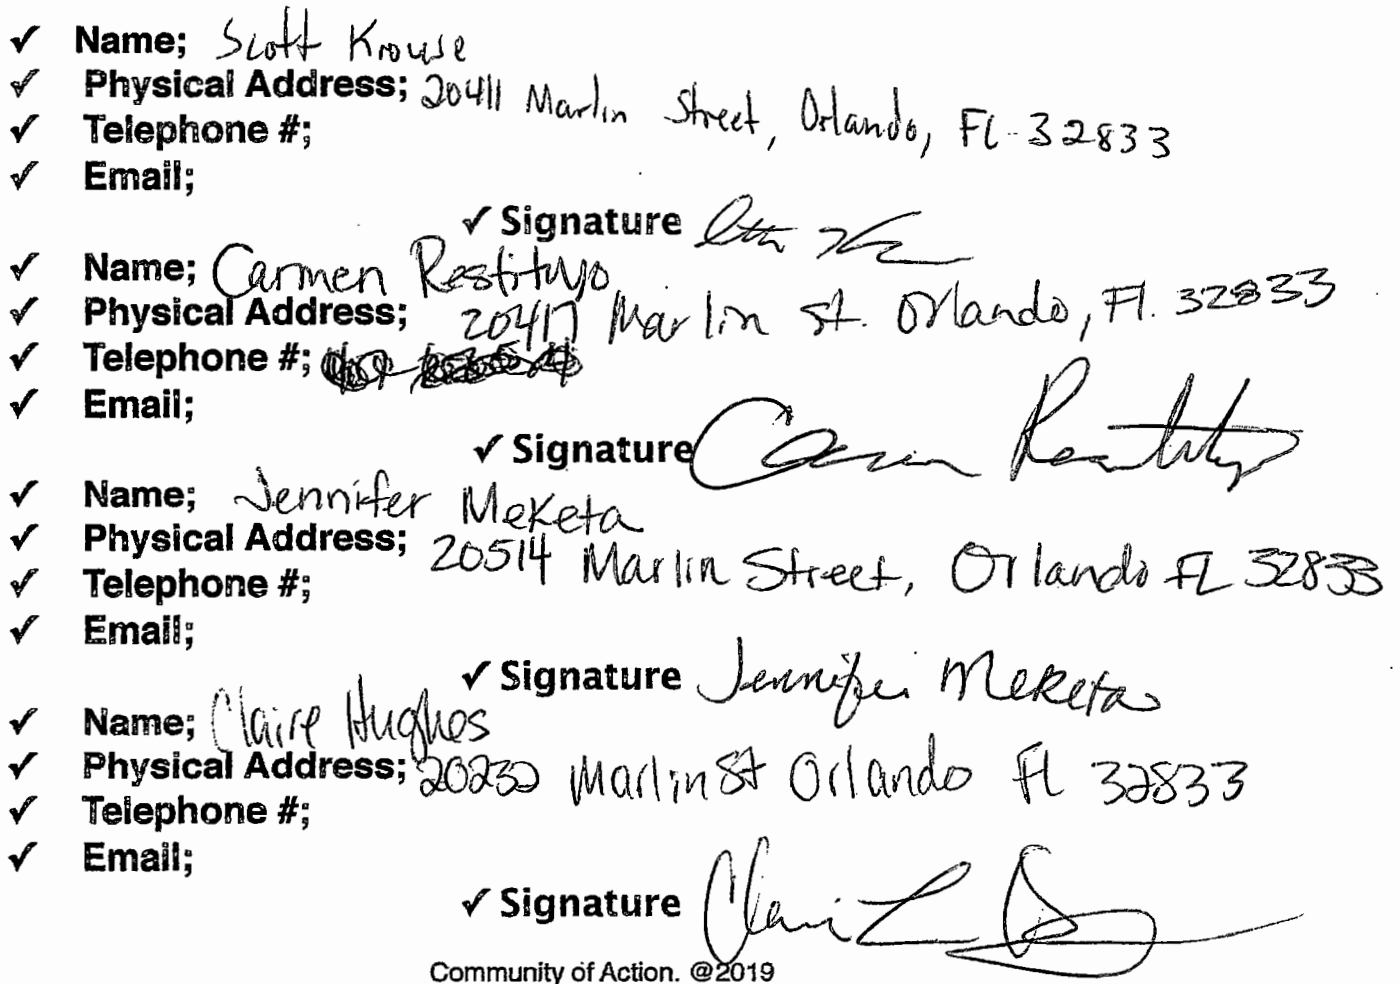 ✓ Name; Scott Krouse
✓ Physical Address; 20411 Marlin Street, Orlando, FL 32833
✓ Telephone #;
✓ Email;
✓ Signature
✓ Name; Carmen Restituyo
✓ Physical Address; 20417 Marlin St. Orlando, Fl. 32833
✓ Telephone #;
✓ Email;
✓ Signature Carmen Restituyo
✓ Name; Jennifer Meketa
✓ Physical Address; 20514 Marlin Street, Orlando FL 32833
✓ Telephone #;
✓ Email;
✓ Signature Jennifer Meketa
✓ Name; Claire Hughes
✓ Physical Address; 20232 Marlin St Orlando Fl 32833
✓ Telephone #;
✓ Email;
✓ Signature
Community of Action. @2019